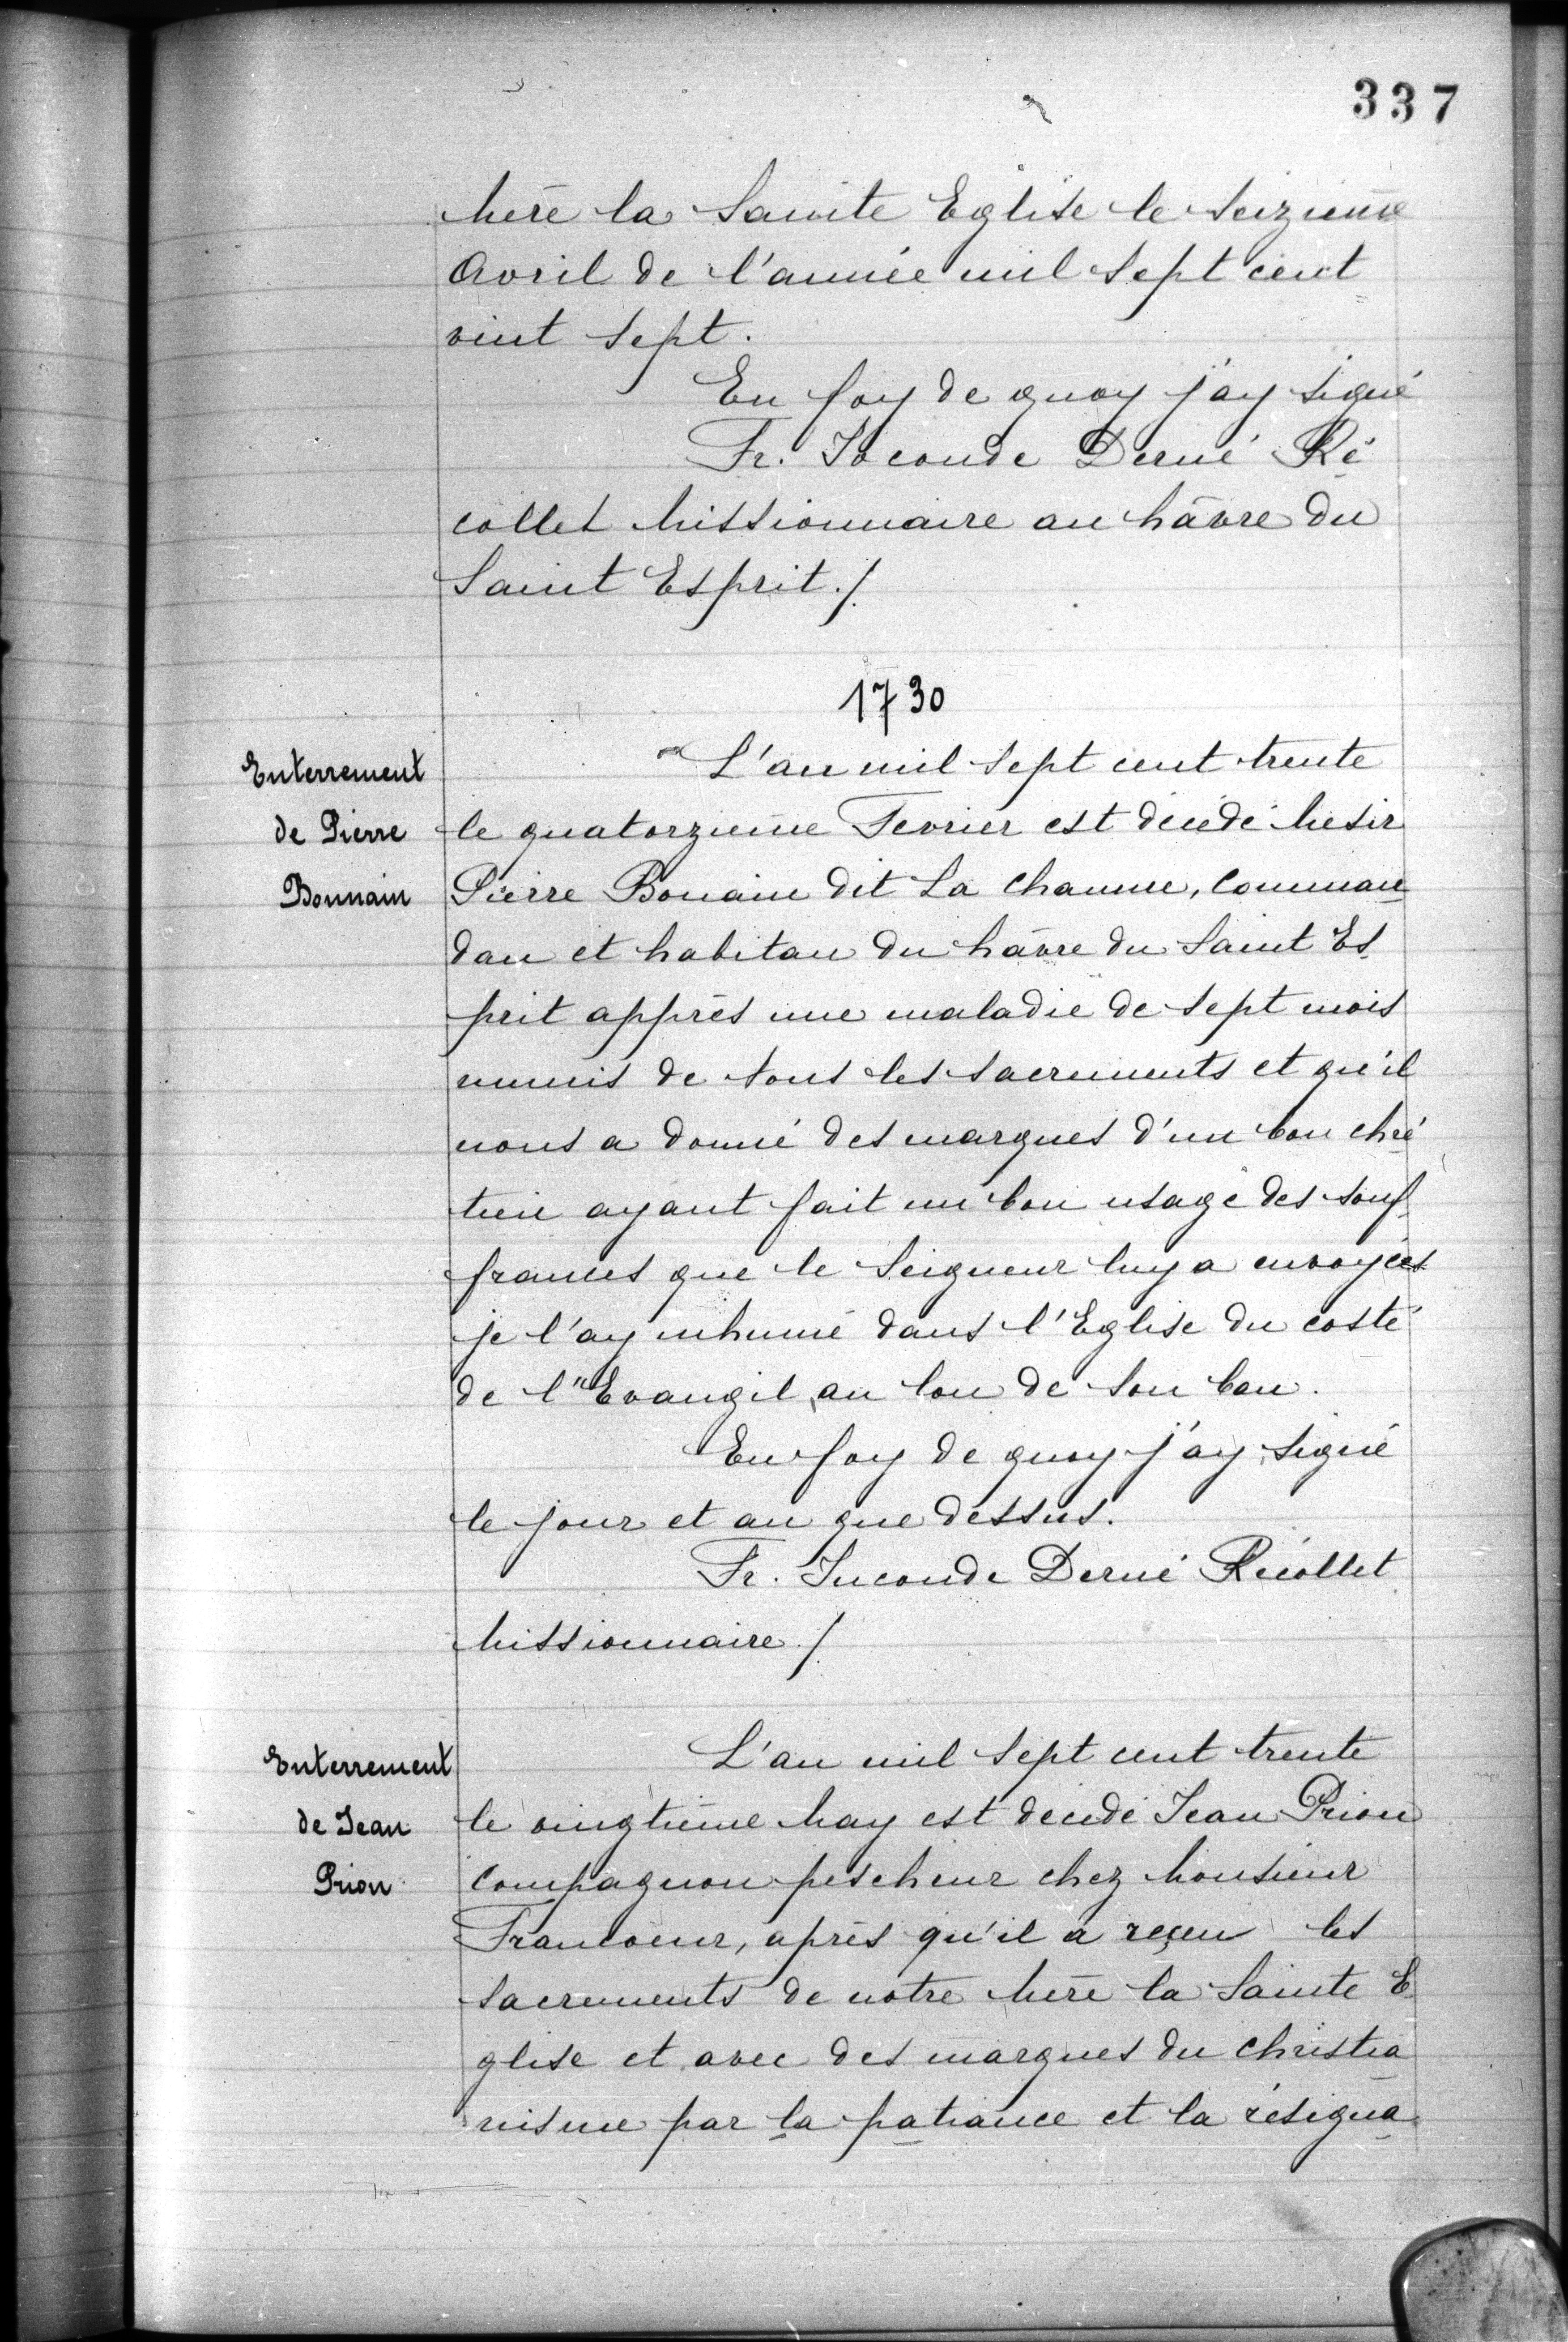 337
Mere la Sainte Eglise le Seizieme
Avril de l'année mil Sept cent
vint Sept.
En foy de quoy j'ay signé
Fr. Joconde Derné Ré
collet Missionnaire au hâvre du
Saint Esprit./.
1730
Enterrement
de Pierre
Bonnain
L'an mil Sept cent trente
le quatorzieme Fevrier est décédé Mesir
Pierre Bonain dit La Chaume, Comman
dan et habitan du hâvre du Saint Es
prit apprés une maladie de Sept mois
munis de tous les Sacrements et qu'il
nous a donné des marques d'un bon chré
tien ayant fait un bon usage des souf
frances que le Seigneur luy a envoyées
je l'ay inhumé dans l'Eglise du costé
de l'Evangil, au lon de son ban.
En foy de quoy j'ay signé
le jour et an que dessus.
Fr. Juconde Derné Récollet
Missionnaire./.
Enterrement
de Jean
Prion
L'an mil Sept cent trente
le vingtième May est décédé Jean Prion
Compagnon pescheur chez Monsieur
Francoeur, aprés qu'il a reçeu les
Sacrements de notre Mere la Sainte E
glise et avec des marques du Christia
nisme par la patiance et la résigna